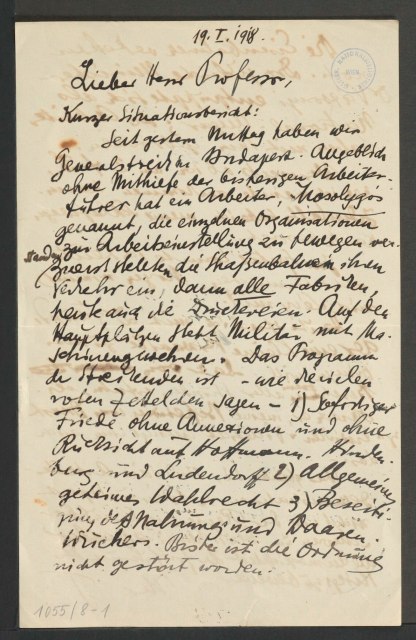 19. I. 1918.
Lieber Herr Professor,
Kurzer Situationsbericht:
Seit gestern Mittag haben wir
Generalstreik in Budapest. Angeblich
ohne Mithilfe der bisherigen Arbeiter-
führer hat ein Arbeiter, Mosolygós
genannt, die einzelnen Organisationen
zur Arbeitseinstellung zu bewegen ver-
standen
zuerst stellten die Straßenbahnen ihren
Verkehr ein, dann alle Fabriken,
heute auch die Druckereien. Auf den
Hauptplätzen steht Militär mit Ma-
schinengewehren. Das Programm
der Streikenden ist – wie die vielen
roten Zettelchen sagen – 1) Sofortiger
Friede ohne Annexionen und ohne
Rücksicht auf Hoffmann, Hinden-
burg und Ludendorff 2) Allgemeines
geheimes Wahlrecht 3) Beseiti-
gung des Nahrungs und
Wuchers. Bisher ist die Ordnung
nicht gestört worden.
1055/8-1